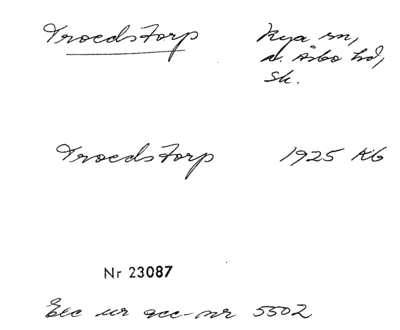 Troedstorp Rya sn,
N. Åsbo hd,
Sk.
Troedstorp 1925 KG
Nr 23087
Exc ur acc-nr 5502